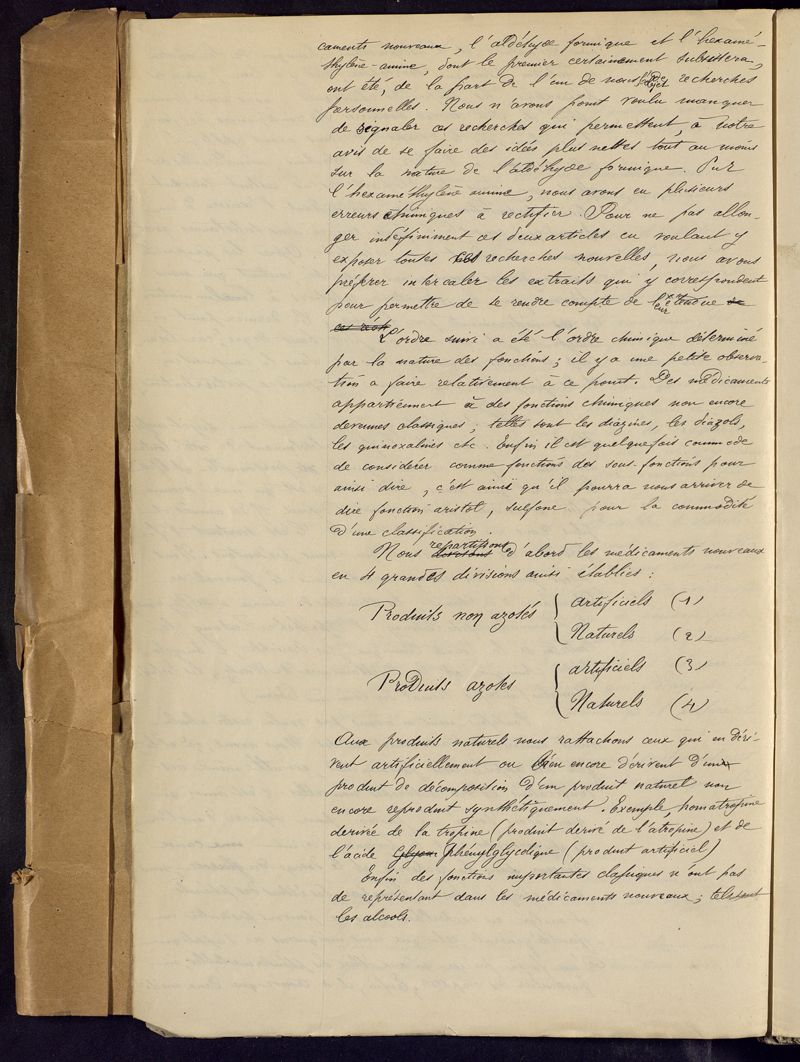 caments nouveaux, l'aldéhyde formique et l'hexamé-
thylène-amine, dont le premier certainement subsistera,
ont été, de la part de l'un de nous l'objet de recherches
personnelles. Nous n'avons point voulu manquer
de signaler ces recherches qui permettent, à notre
avis de se faire des idées plus nettes tout au moins
sur la nature de l'aldéhyde formique. Sur
l'hexaméthylène amine, nous avons eu plusieurs
erreurs chimiques à rectifier. Pour ne pas allon-
ger indéfiniment ces deux articles en voulant y
exposer toutes ces recherches nouvelles, nous avons
préférer intercaler les extraits qui y correspondent
pour permettre de se rendre compte de leur étendue de
ces
L'ordre suivi a été l'ordre chimique déterminé
par la nature des fonctions; il y a une petite observa-
tion a faire relativement à ce point. Des médicaments
appartiennent à des fonctions chimiques non encore
devenues classiques; telles sont les diazines, les diazols,
les quinoxalines etc. Enfin il est quelquefois commode
de considérer comme fonctions des sous-fonctions pour
ainsi dire, c'est ainsi qu'il pourra nous arriver de
dire fonction aristol, sulfone pour la commodité
d'une classification.
Nous repartissons d'abord les médicaments nouveaux
en 4 grandes divisions ainsi établies:
Produits non azotés { artificiels (1)
Naturels (2)
Produits azotés { artificiels (3)
Naturels (4)
Aux produits naturels nous rattachons ceux qui en déri-
vent artificiellement ou bien encore dérivent d'un
produit de décomposition d'un produit naturel non
encore reproduit synthétiquement. Exemple, homatropine
derivée de la tropine (produit derivé de l'atropine) et de
l'acide phénylglycolique (produit artificiel)
Enfin des fonctions importantes classiques n'ont pas
de représentant dans les médicaments nouveaux; tels sont
les alcools.